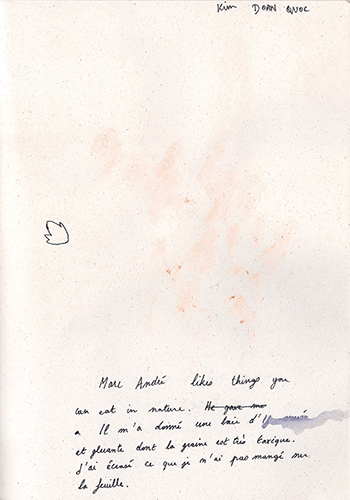 Kim DOAN QUOC
Marc André likes things you
can eat in nature. He gave me
a Il m'a donné une baie d'
et gluante dont la graine est très toxique.
J'ai écrasé ce que je n'ai pas mangé sur
la feuille.